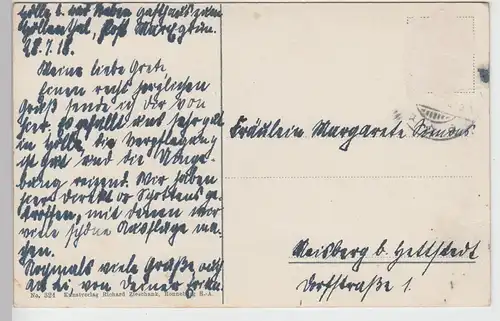 Hölle b. Bad Steben Gasthaus zum
Höllental, Post Marxgrün.
28.7.18.
Meine liebe Grete
Einen recht herzlichen
Gruß sende ich dir von
hier. Es gefällt uns sehr gut
in Hölle, die Verpflegung
ist gut und die Umge-
bung reizend. Wir haben
hier direkt Schottens ge-
troffen, mit denen wir
viele schöne Ausflüge ma-
chen.
Nochmals viele Grüße auch
von Deiner
No. 324 Kunstverlag Richard Zieschank, Ronneburg S.-A.
Fräulein Margarete Simons
Meisberg b. Hettstedt
Dorfstraße 1.